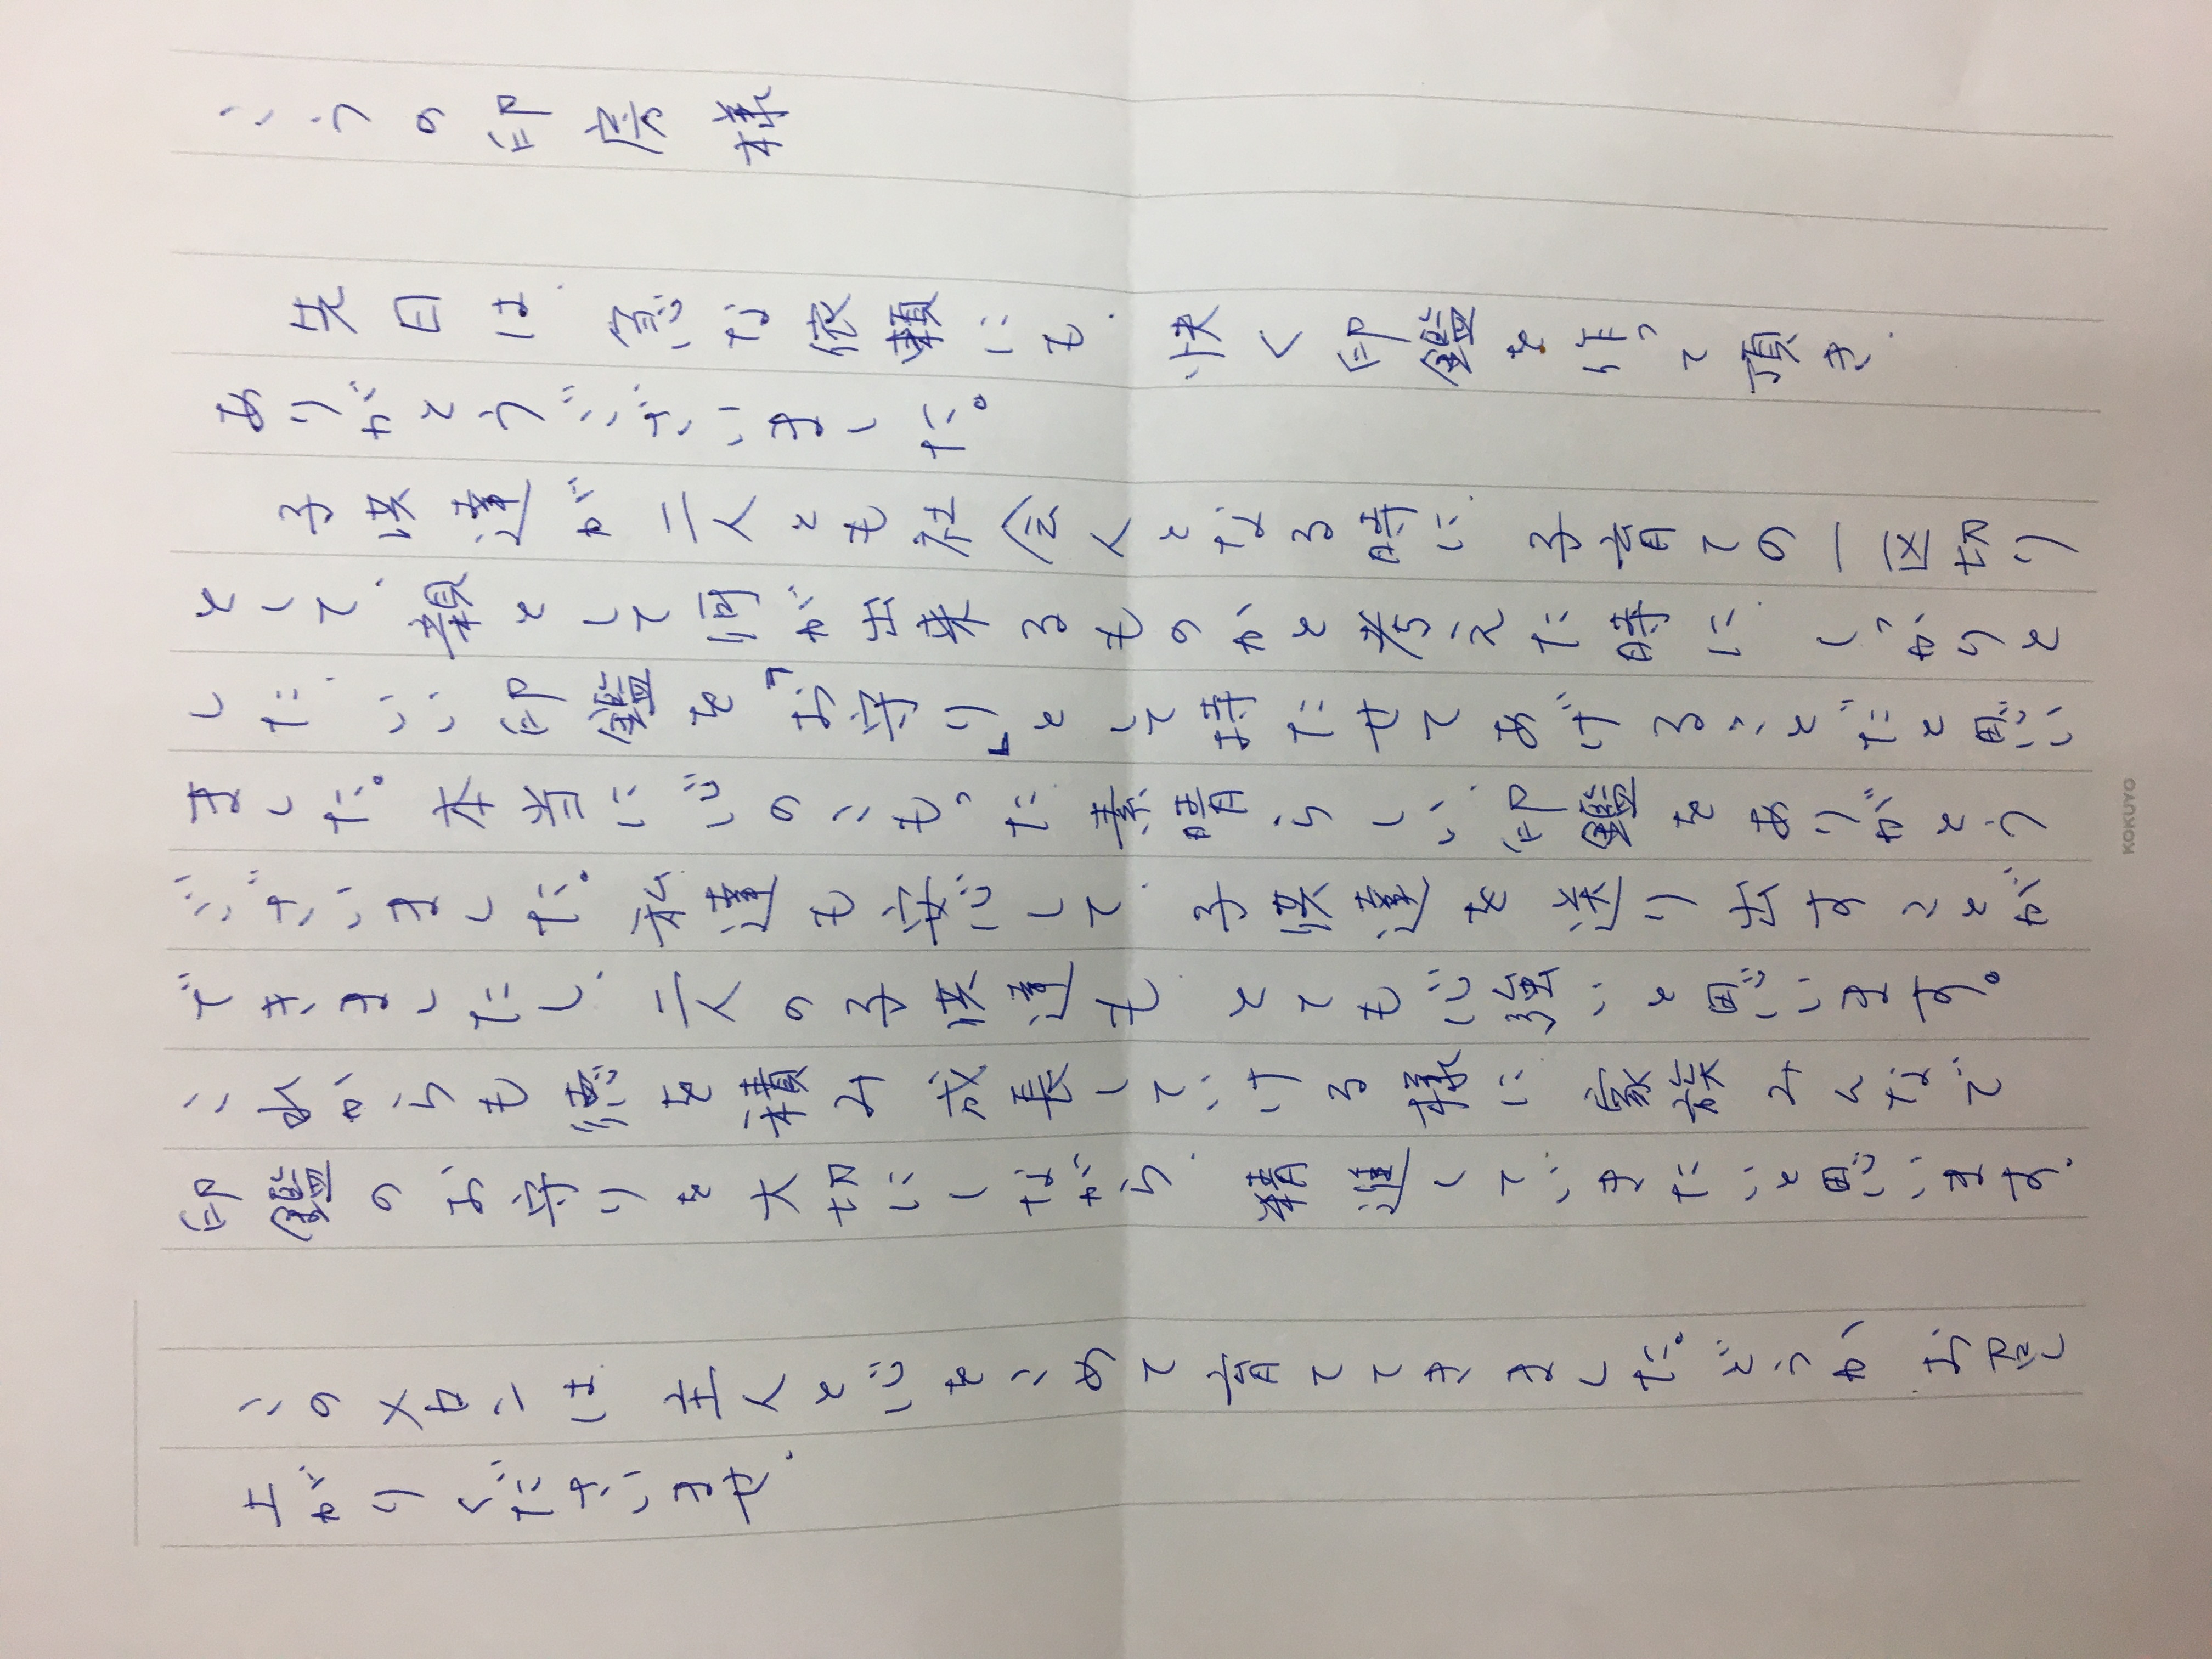 こうの印房様
先日は、急な依頼にも、快く印鑑を作って頂き、
ありがとうございました。
子供達が二人とも社会人となる時に、子育ての一区切り
として、親として何が出来るものかと考えた時に、しっかりと
した、いい印鑑を「お守り」として持たせてあげることだと思い
ました。本当に心のこもった素晴らしい、印鑑をありがとう
ございました。私達も安心して、子供達を送り出すことが
できましたし、二人の子供達も、とても心強いと思います。
これからも徳を積み成長していける様に 家族みんなで
印鑑のお守りを大切にしながら、精進していきたいと思います。
このメロンは、主人と心をこめて育ててきました。どうか、お召し
上がりくださいませ。
KOKUYO